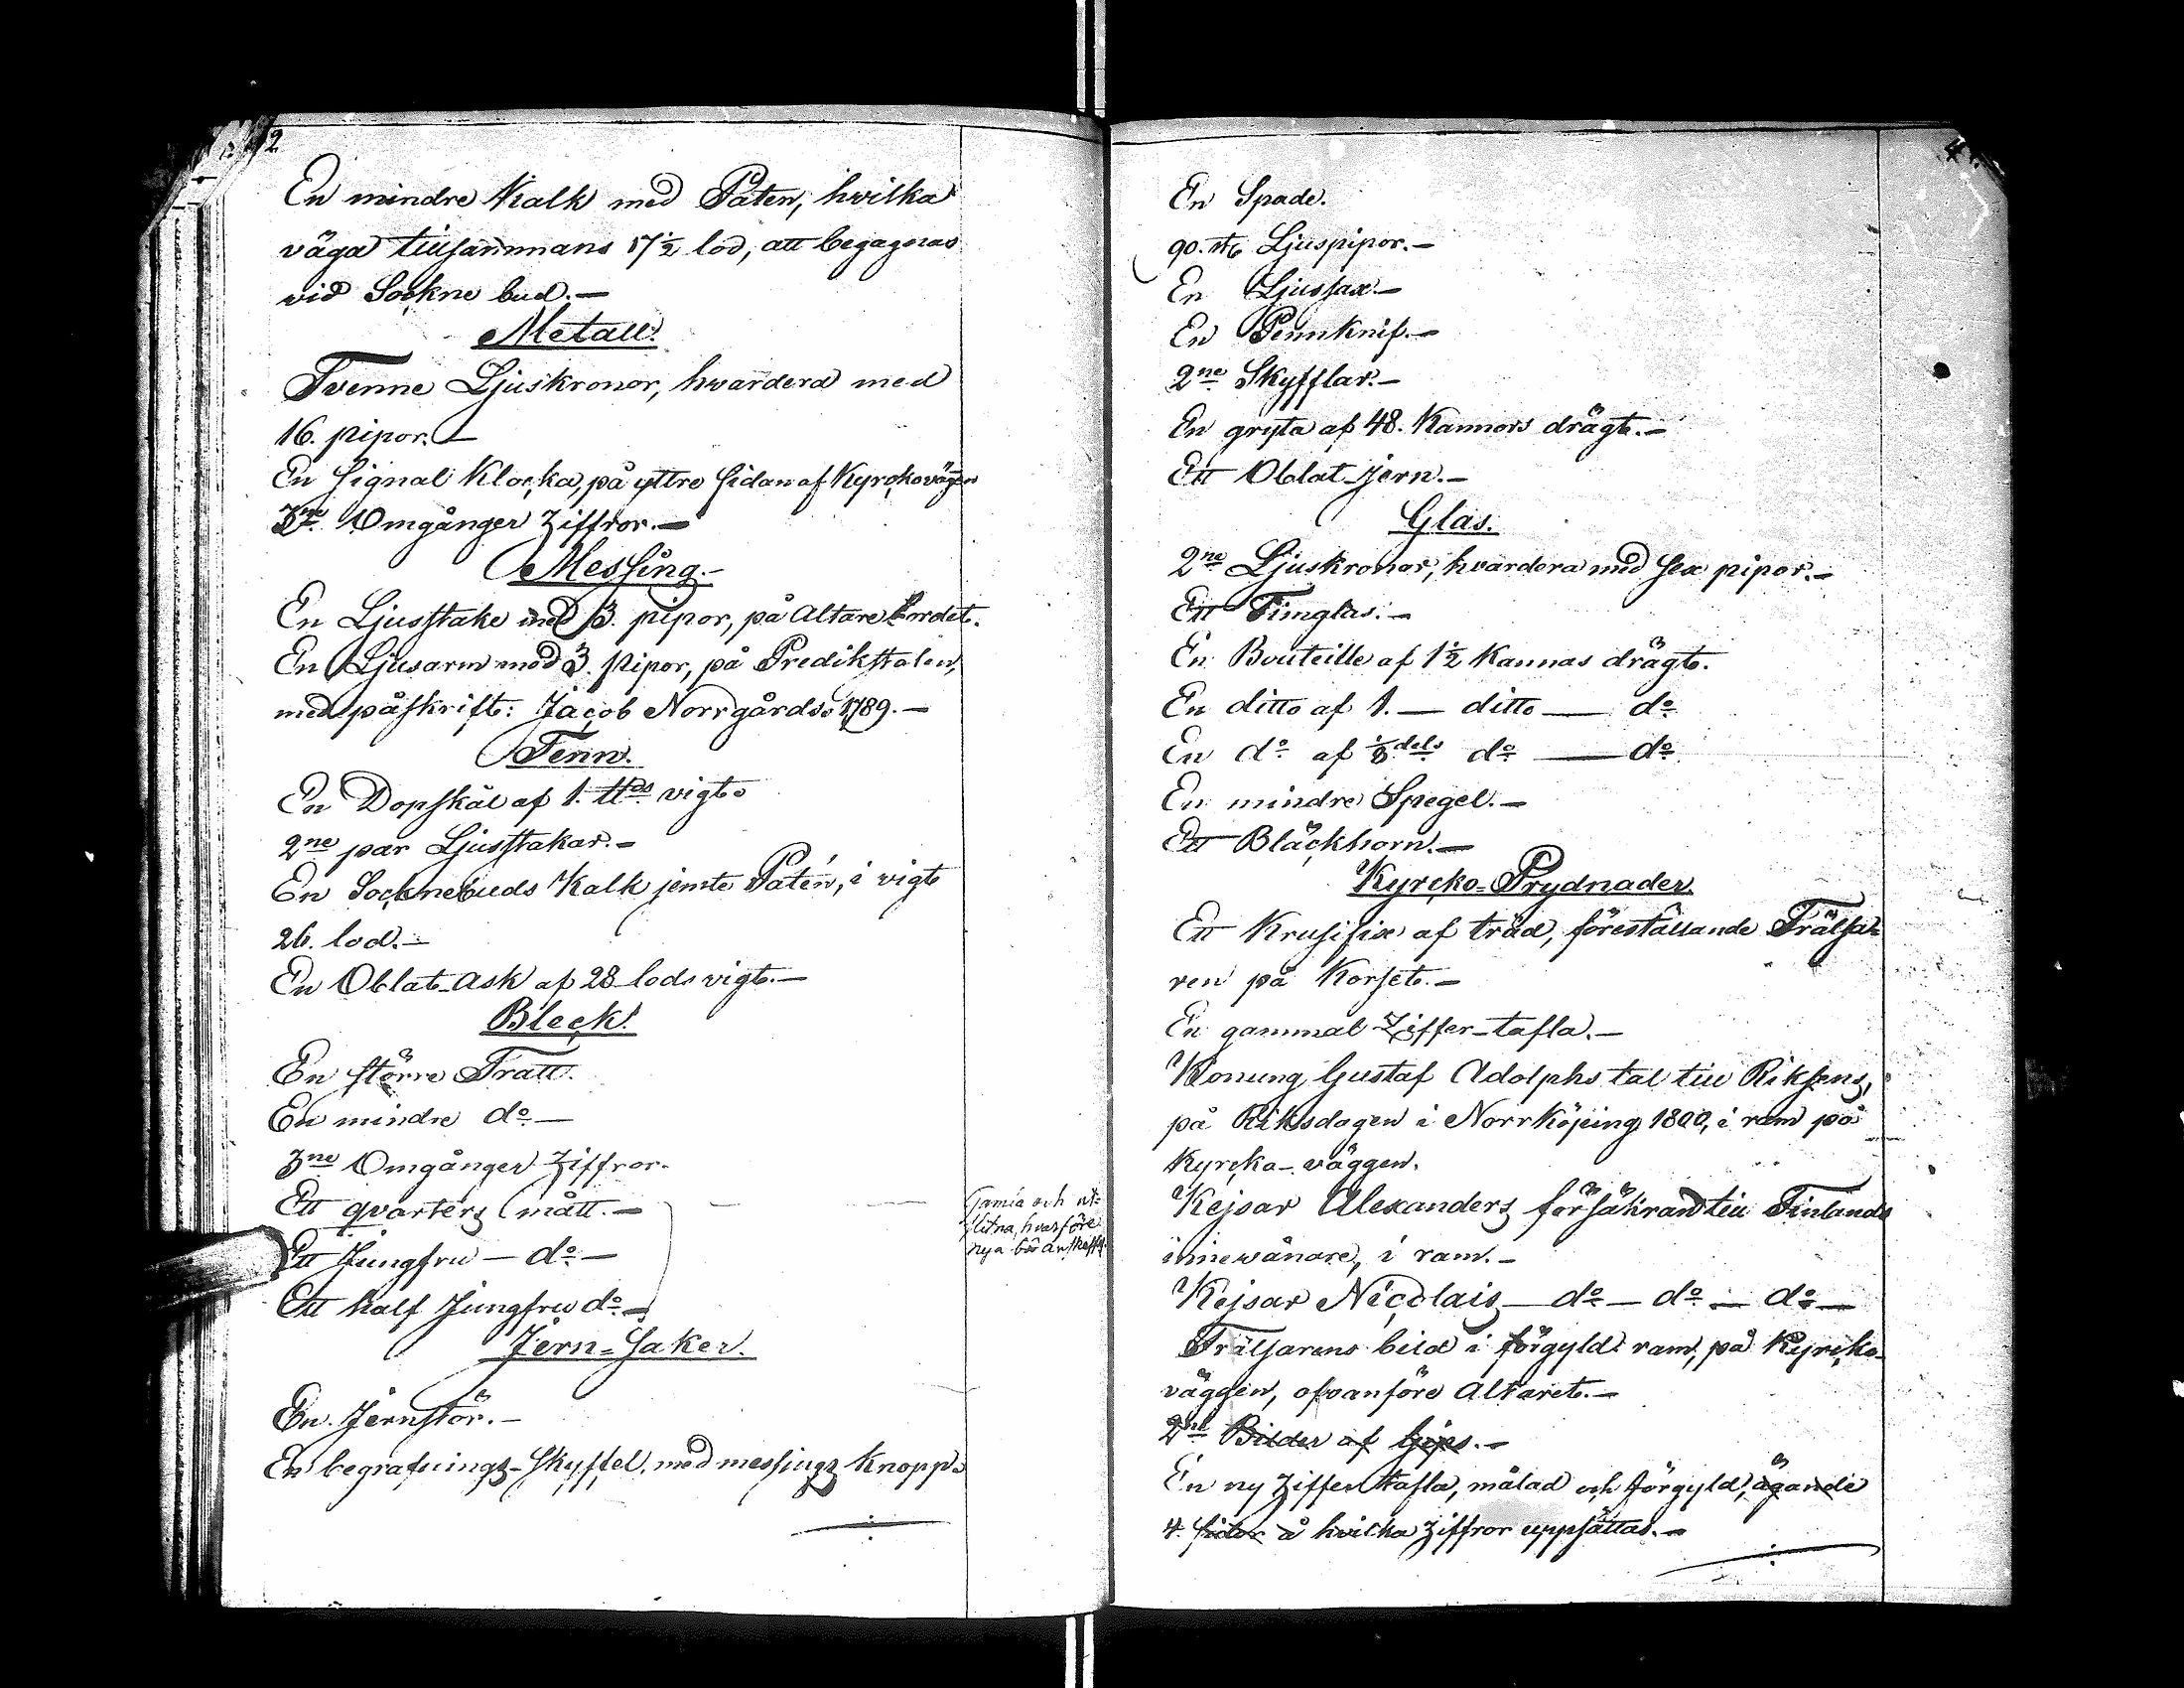 2
En mindre Kalk med Paten, hvilka
väga tillsammans 17 1/2 lod, att begagnas
vid Sockne bud.—
Metall.
Tvenne Ljuskronor, hvardera med
16. pipor.—
En Signal Klocka, på yttre sidan af Kyrckovägen
3ne Omgånger Ziffror.—
Messing.—
En Ljusstake med 3. pipor, på Altare Bordet.
En Ljusarm med 3. pipor, på Predikstolen,
med påskrift: Jacob Norrgårds 1789.—
Tenn.
En Dopskål af 1. ℔ds vigt
2ne par Ljusstakar.—
En Socknebuds Kalk jemte Patén, i vigt
26. lod.—
En Oblat-Ask af 28 lods vigt.—
Bleck.
En större Tratt.
En mindre do—
3ne Omgånger Ziffror.
Ett qvarters mått.—
Ett Jungfru — do—
Ett half Jungfru do—
Gamla och ut-
slitna, hvarföre
nya bör anskaffs.
Jern-Saker.
En Jernstör.—
En begrafnings-Skyffel, med messings Knopp.
En Spade.
90. st. Ljuspipor.—
En Ljussax.—
En Pennknif.—
2ne Skyfflar.—
En gryta af 48. Kannors drägt.—
Ett Oblat-jern.—
Glas.
2ne Ljuskronor, hvardera med sex pipor.—
Ett Timglas.—
En Bouteille af 1 1/2 Kannas drägt.
En ditto af 1.— ditto — do
En do af 1/8 dels do — do
En mindre Spegel.—
Ett Bläckhorn.—
Kyrcko-Prydnader
Ett Krusifix af träd, föreställande Frälsa-
ren på Korset.—
En gammal Ziffer-tafla.—
Konung Gustaf Adolphs tal till Riksens,
på Riksdagen i Norrköping 1800, i ram på
Kyrcka-väggen.
Kejsar Alexanders försäkran till Finlands
innewånare, i ram.—
Kejsar Nicolais — do — do — do—
Frälsarens bild i förgyld ram, på Kyrcko-
väggen, ofvanföre Altaret.—
2ne Bilder af Gips.—
En ny Ziffer tafla, målad och förgyld, ägande
4. sidor å hvilka Ziffror uppsättas.—